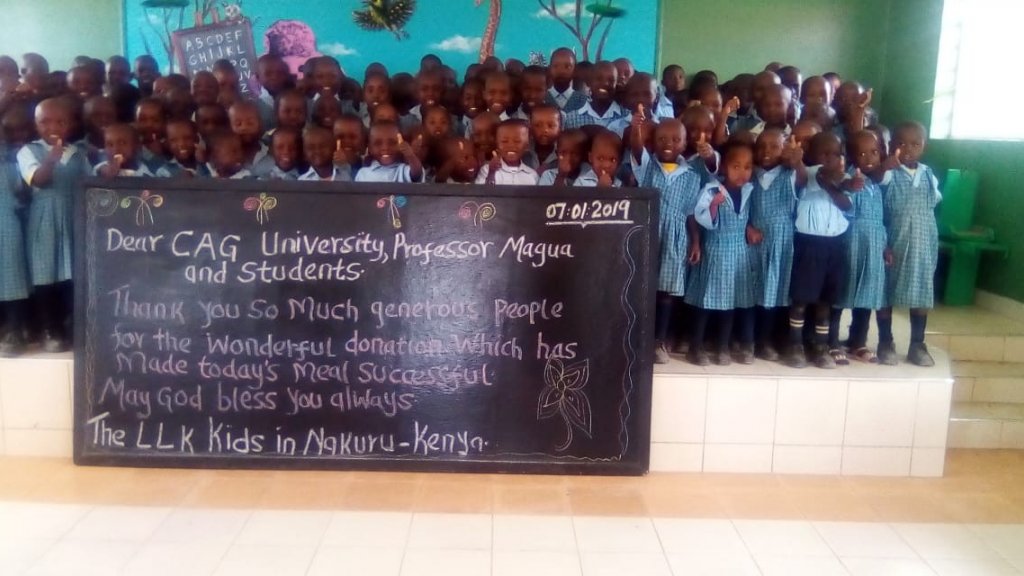 ABCDEF
07:01:2019
Dear CAG University, Professor Magua
and Students.
Thank you So Much generous People
for the Wonderful donation Which has
Made today's Meal Successful.
May God bless You always
The LLK Kids in Nakuru - Kenya.